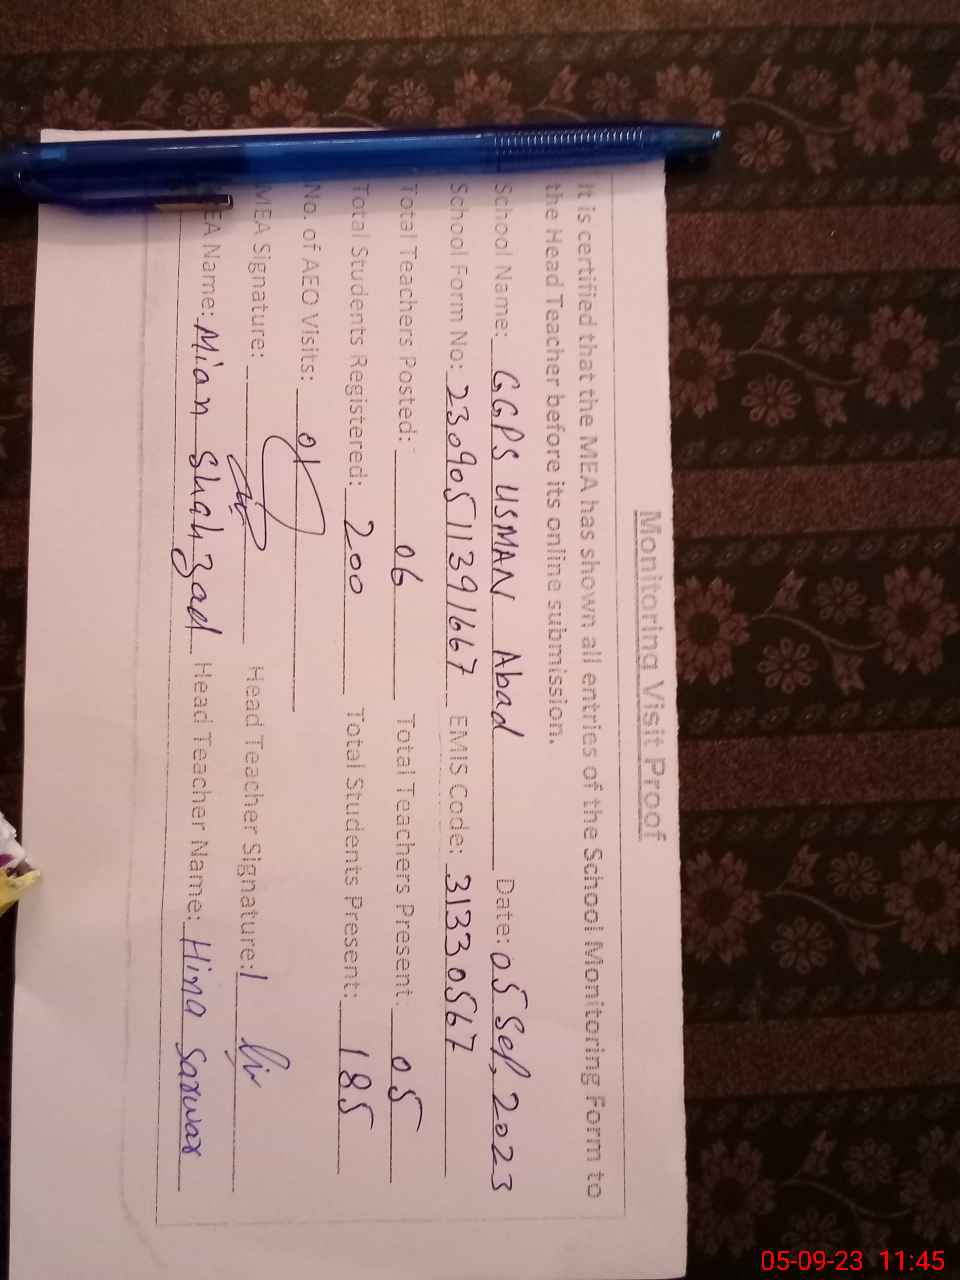 Monitoring Visit Proof
It is certified that the MEA has shown all entries of the School Monitoring Form to
the Head Teacher before its online submission.
School Name: GGPS USMAN Abad Date: 05 Sep, 2023
School Form No: 23090511391667 EMIS Code: 31330567
Total Teachers Posted: 06 Total Teachers Present. 05
Total Students Registered: 200 Total Students Present: 185
No. of AEO Visits: 01
MEA Signature: Head Teacher Signature:
EA Name: Mian Shahzad Head Teacher Name: Hina Sarwar
05-09-23 11:45